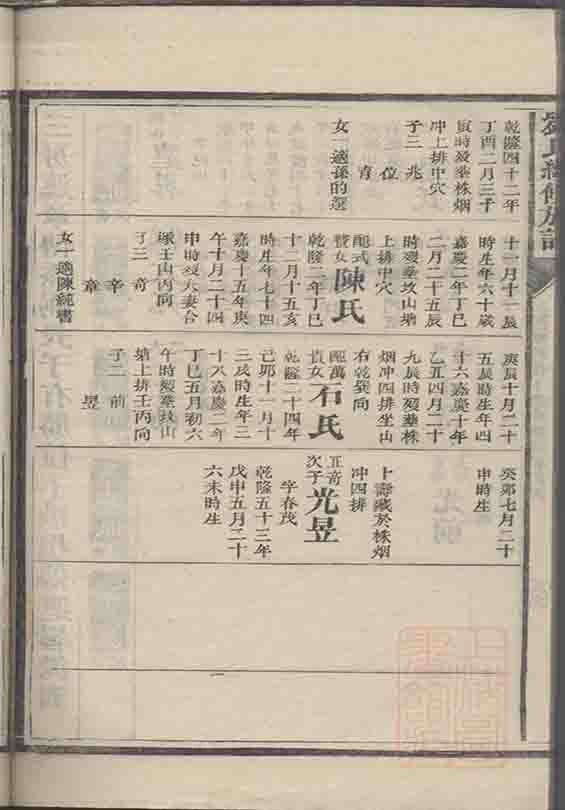 乾隆四十二年
丁酉二月三十
寅時歿葬株烟
冲上排中穴
子三 兆
位
育
女一適孫的選
十一月十二辰
時生年六十歲
嘉慶二年丁巳
二月二十五辰
時歿葬坟山塘
上排中穴
配式
贅女
陳氏
乾隆二年丁巳
十二月十五亥
時生年七十四
嘉慶十五年庚
午十月二十四
申時歿夫妻合
塚壬山丙向
子三 奇
辛
章
女一適陳純書
庚辰十月二十
五辰時生年四
十六嘉慶十年
乙丑四月二十
九辰時歿葬株
烟冲四排坐山
右乾巽向
配萬
貴女
石氏
乾隆二十四年
己卯十一月十
三戌時生年三
十八嘉慶二年
丁巳五月初六
午時歿葬坟山
塘上排壬丙向
子二 前
昱
癸卯七月二十
申時生
卜壽藏於株烟
冲四排
正奇
次子
光昱
字春茂
乾隆五十三年
戊申五月二十
六未時生